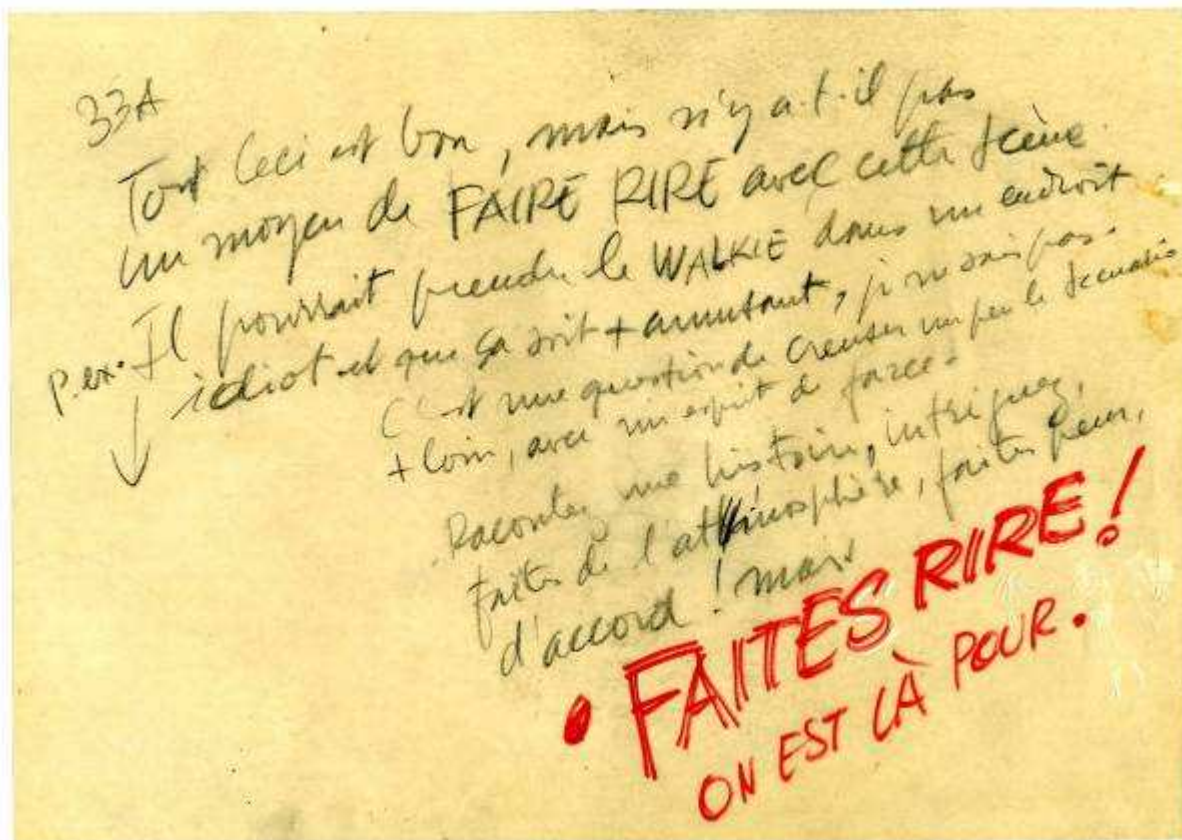 33A
Tout ceci est bon, mais n'y a-t-il pas
un moyen de FAIRE RIRE avec cette scène.
p.ex. Il pourrait prendre le WALKIE dans un endroit
idiot et que ça soit + amusant, je ne sais pas.
C'est une question de creuser un peu le scénario
+ loin, avec un esprit de farce.
Racontez une histoire, intriguez,
faites de l'atmosphère, faites peur,
d'accord ! mais
• FAITES RIRE !
ON EST LÀ POUR.